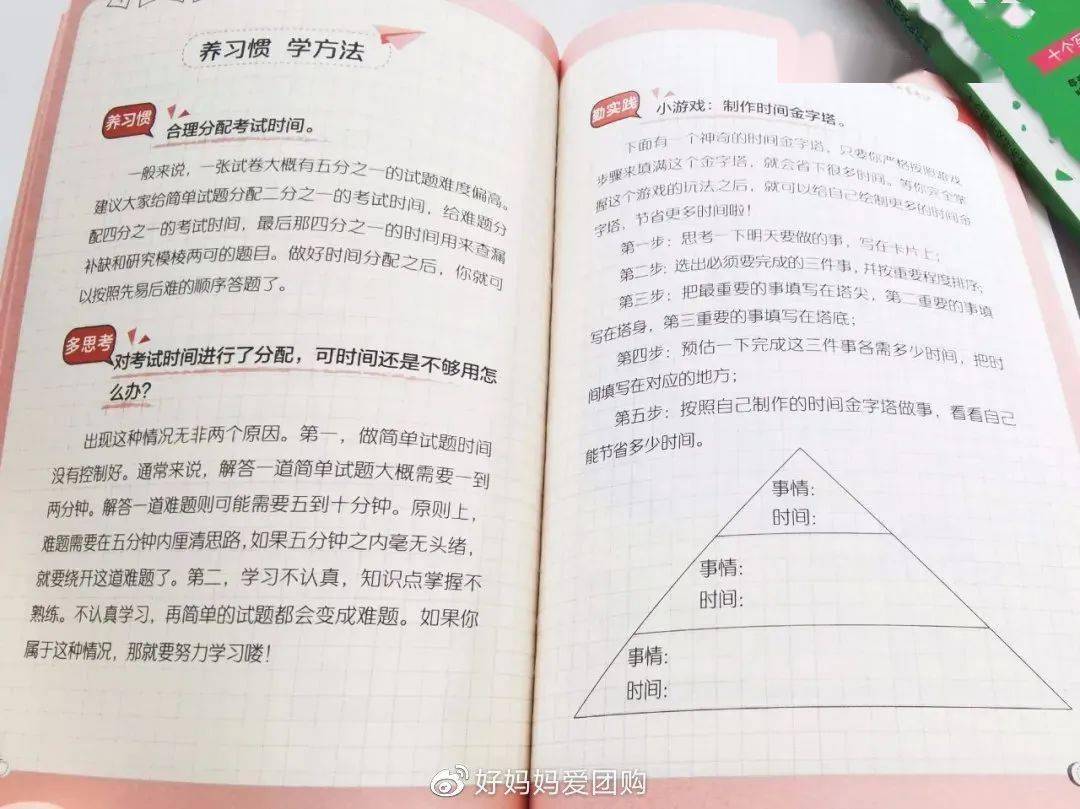 养习惯 学方法
养习惯
合理分配考试时间。
一般来说，一张试卷大概有五分之一的试题难度偏高。
建议大家给简单试题分配二分之一的考试时间，给难题分
配四分之一的考试时间，最后那四分之一的时间用来查漏
补缺和研究模棱两可的题目。做好时间分配之后，你就可
以按照先易后难的顺序答题了。
多思考
对考试时间进行了分配，可时间还是不够用怎
么办？
出现这种情况无非两个原因。第一，做简单试题时间
没有控制好。通常来说，解答一道简单试题大概需要一到
两分钟。解答一道难题则可能需要五到十分钟。原则上，
难题需要在五分钟内厘清思路，如果五分钟之内毫无头绪，
就要绕开这道难题了。第二，学习不认真，知识点掌握不
熟练。不认真学习，再简单的试题都会变成难题。如果你
属于这种情况，那就要努力学习喽！
勤实践
小游戏：制作时间金字塔。
下面有一个神奇的时间金字塔，只要你严格按照游戏
步骤来填满这个金字塔，就会省下很多时间。等你完全掌
握这个游戏的玩法之后，就可以给自己绘制更多的时间金
字塔，节省更多时间啦！
第一步：思考一下明天要做的事，写在卡片上；
第二步：选出必须要完成的三件事，并按重要程度排序；
第三步：把最重要的事填写在塔尖，第二重要的事填
写在塔身，第三重要的事填写在塔底；
第四步：预估一下完成这三件事各需多少时间，把时
间填写在对应的地方；
第五步：按照自己制作的时间金字塔做事，看看自己
能节省多少时间。
事情：
时间：
事情：
时间：
事情：
时间：
十个
好妈妈爱团购